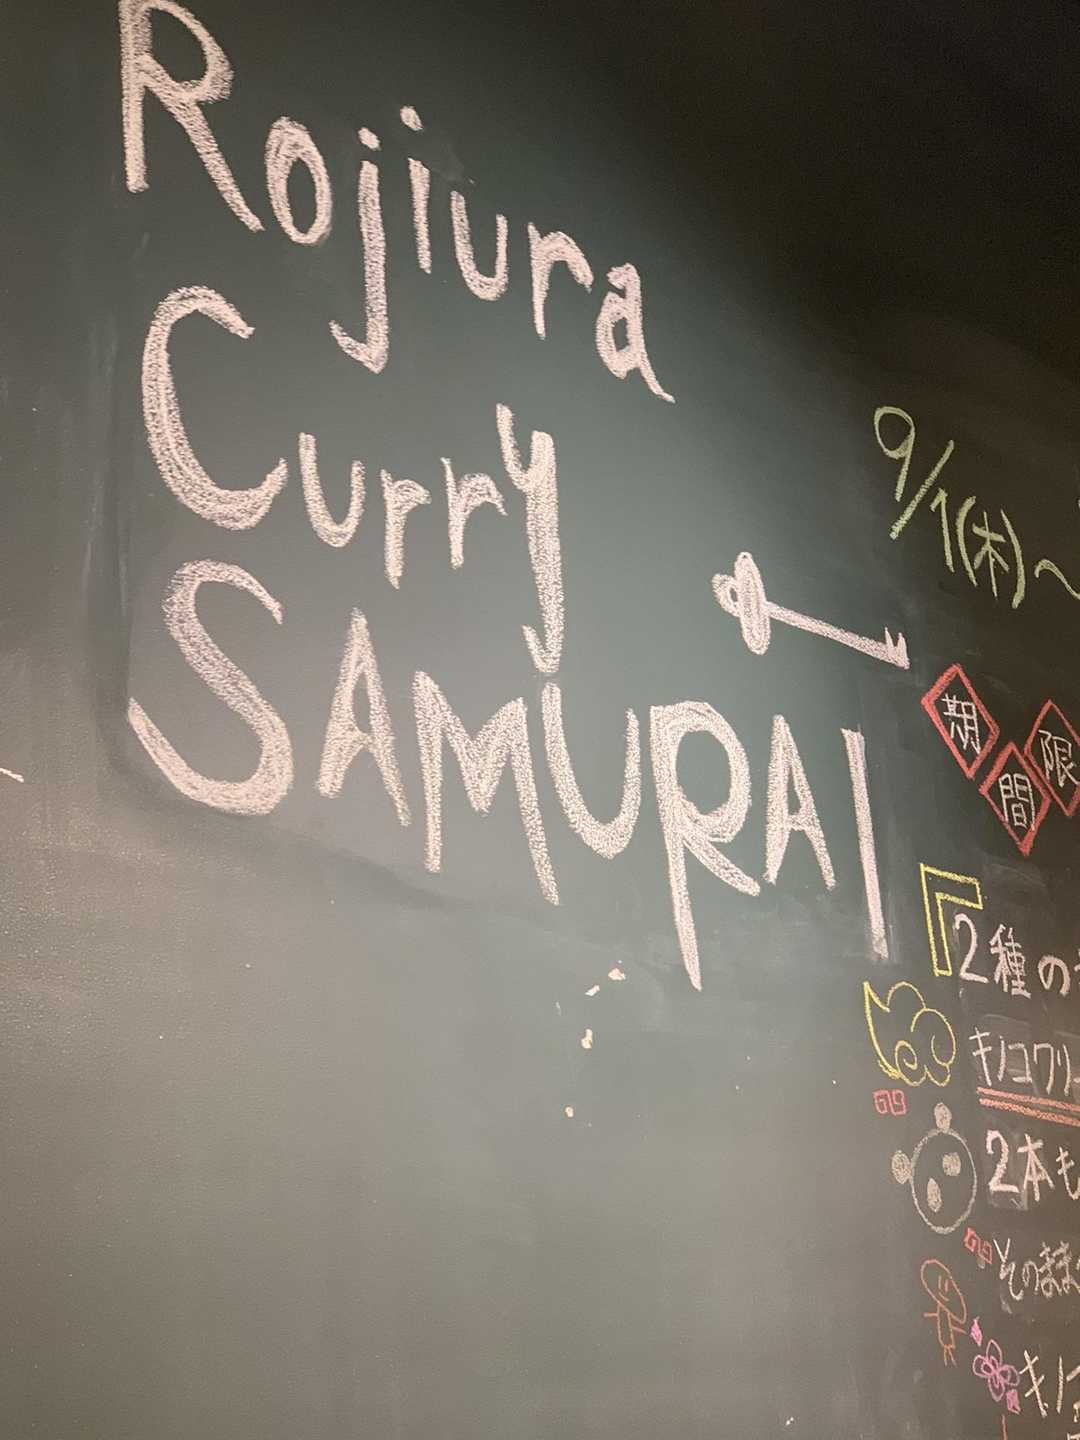 Rojiura
Curry
SAMURAI
9/1(木)〜
期間限
『2種の
キノコクリ
2本も
そのまま
キノ